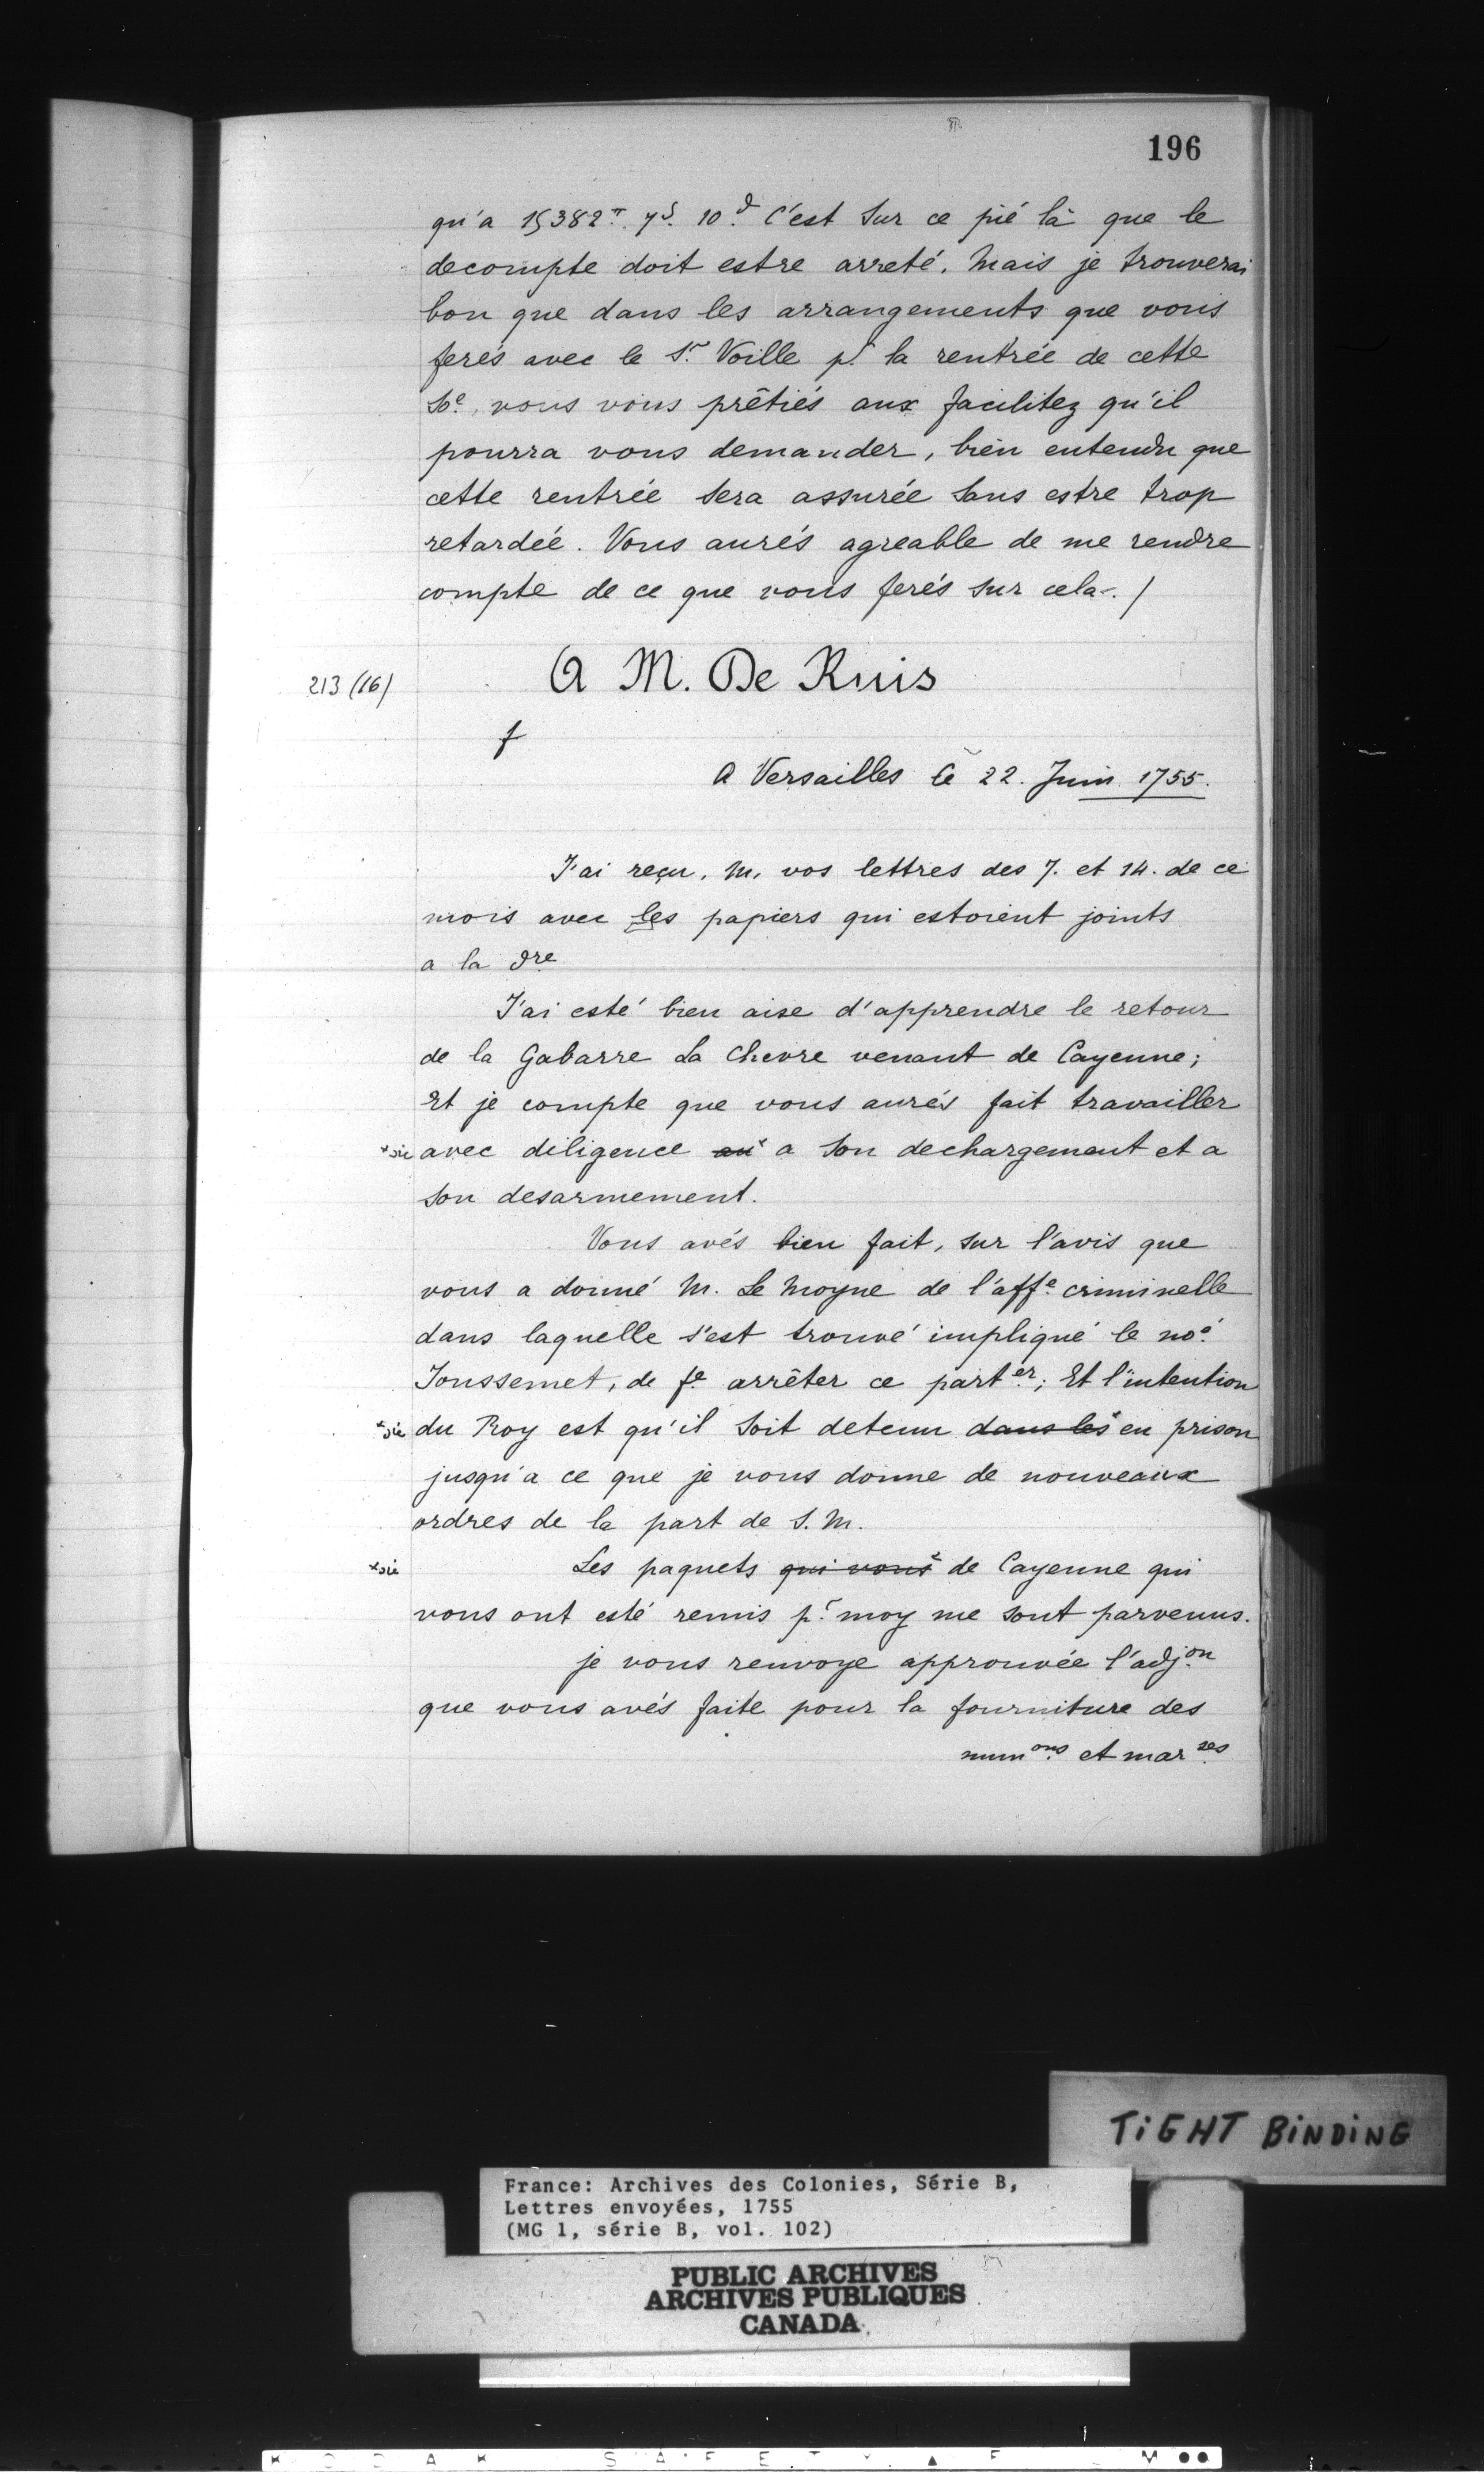 196
qu'a 15382# 7s. 10d. C'est sur ce pié là que le
decompte doit estre arreté. Mais je trouverai
bon que dans les arrangements que vous
ferés avec le Sr. Voille pr. la rentrée de cette
Se., vous vous prêtiés aux facilitez qu'il
pourra vous demander, bien entendu que
cette rentrée sera assurée sans estre trop
retardée. Vous aurés agreable de me rendre
compte de ce que vous ferés sur cela./
213 (16)
A M. De Ruis
f
A Versailles le 22. Juin 1755.
J'ai reçu, M. vos lettres des 7. et 14. de ce
mois avec les papiers qui estoient joints
a la dre
J'ai esté bien aise d'apprendre le retour
de la Gabarre La Chevre venant de Cayenne;
Et je compte que vous aurés fait travailler
*sic avec diligence au* a son dechargement et a
son desarmement.
Vous avés bien fait, sur l'avis que
vous a donné M. Le Moyne de l'affe. criminelle
dans laquelle s'est trouvé impliqué le noé.
Joussemet, de fe. arrêter ce parter.; Et l'intention
*sic du Roy est qu'il soit detenu dans les* en prison
jusqu'a ce que je vous donne de nouveaux
ordres de la part de S. M.
*sic Les paquets qui vous* de Cayenne qui
vous ont esté remis pr. moy me sont parvenus.
je vous renvoye approuvée l'adjon.
que vous avés faite pour la fourniture des
munons. et marses.
TiGHT BiNDiNG
France: Archives des Colonies, Série B,
Lettres envoyées, 1755
(MG 1, série B, vol. 102)
PUBLIC ARCHIVES
ARCHIVES PUBLIQUES
CANADA